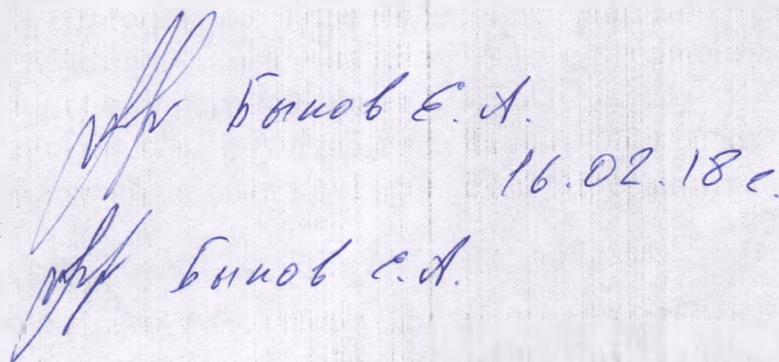 Быков Е. А.
16.02.18 г.
Быков Е. А.